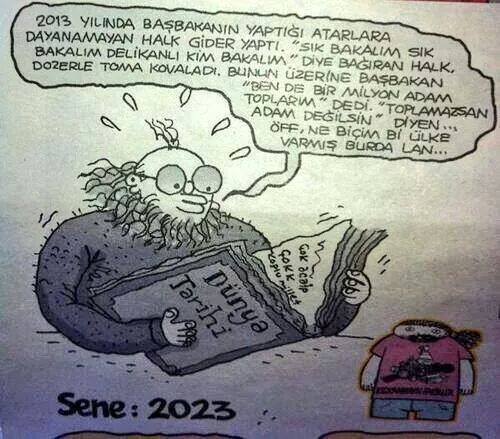 2013 YILINDA BAŞBAKANIN YAPTIĞI ATARLARA
DAYANAMAYAN HALK GİDER YAPTI. "SIK BAKALIM SIK
BAKALIM DELİKANLI KİM BAKALIM." DİYE BAĞIRAN HALK,
DOZERLE TOMA KOVALADI. BUNUN ÜZERİNE BAŞBAKAN
"BEN DE BİR MİLYON ADAM
TOPLARIM" DEDİ. "TOPLAMAZSAN
ADAM DEĞİLSİN" DİYEN...
ÖFF, NE BİÇİM Bİ ÜLKE
VARMIŞ BURDA LAN...
Çok acaip
Çokk
Dünya
Tarihi
Sene: 2023